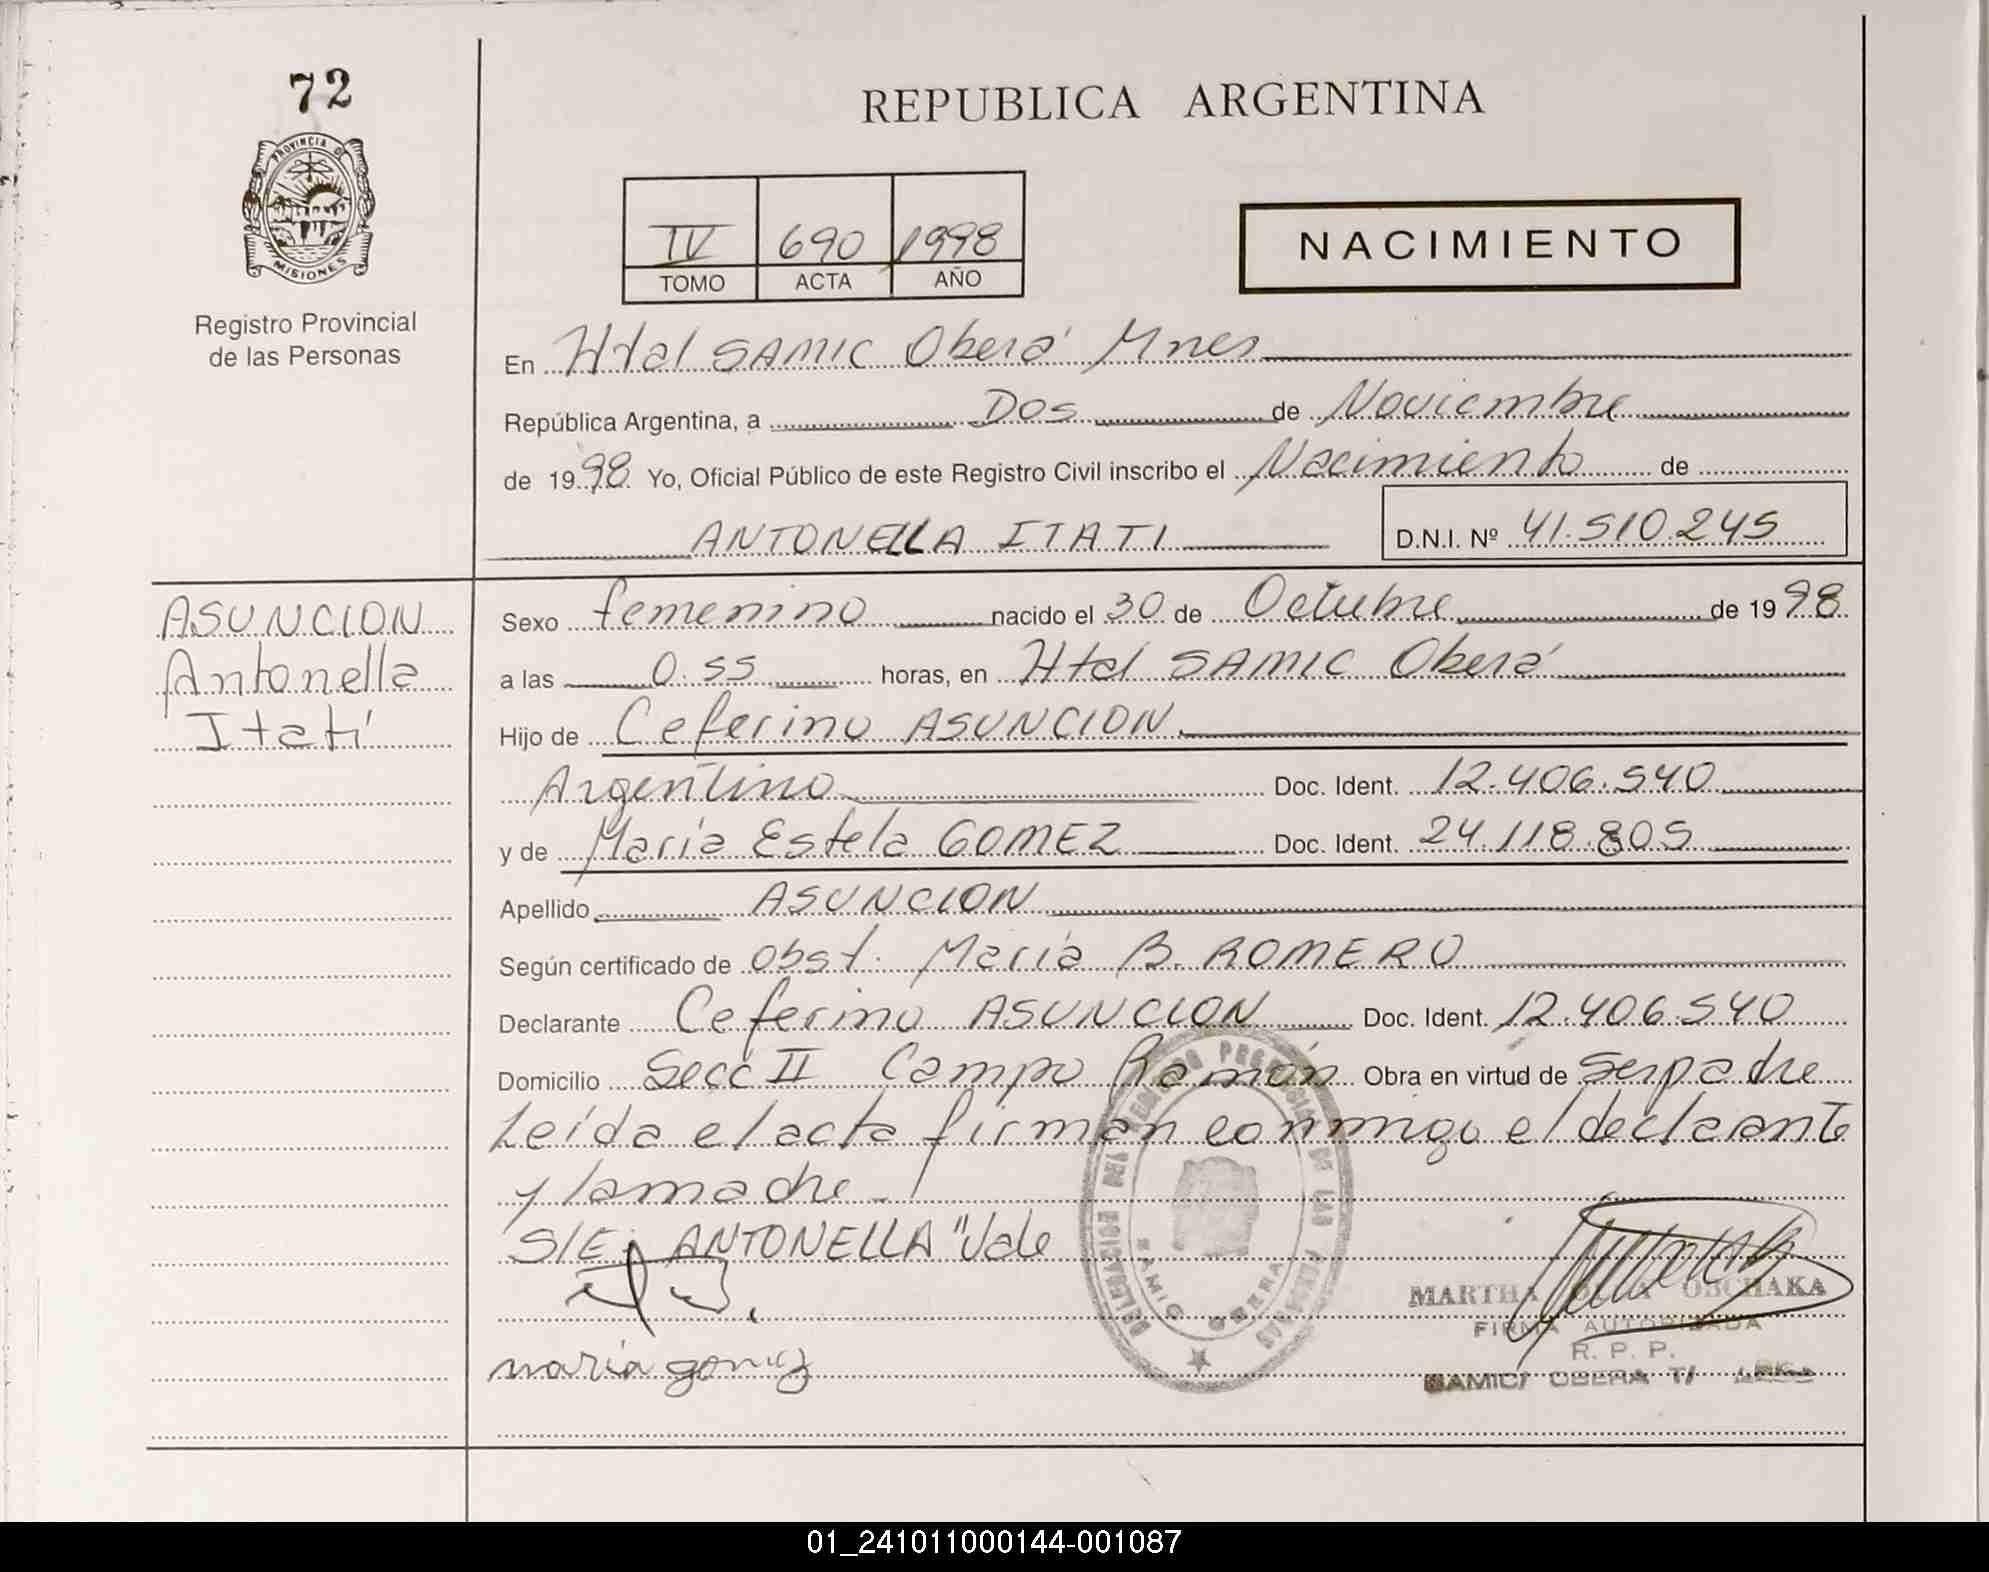 72
PROVINCIA DE
MISIONES
Registro Provincial
de las Personas
REPUBLICA ARGENTINA
IV 690 1998
TOMO ACTA AÑO
NACIMIENTO
En Htal SAMIC Oberá Mnes
República Argentina, a Dos de Noviembre
de 1998 Yo, Oficial Público de este Registro Civil inscribo el Nacimiento de
ANTONELLA ITATI D.N.I. Nº 41.510.245
ASUNCION
Antonella
Itatí
Sexo femenino nacido el 30 de Octubre de 1998
a las 0.55 horas, en Htal SAMIC Oberá
Hijo de Ceferino ASUNCION
Argentino Doc. Ident. 12.406.540
y de María Estela GOMEZ Doc. Ident. 24.118.805
Apellido ASUNCION
Según certificado de Obst. María B. ROMERO
Declarante Ceferino ASUNCION Doc. Ident. 12.406.540
Domicilio Secc II Campo Ramón Obra en virtud de ser padre
Leída el acta firman conmigo el declarante
y la madre.
S/E: ANTONELLA "Vale
maria gomez
DELEGACION DEL REGISTRO PROVINCIAL DE LAS PERSONAS
SAMIC OBERA
MARTHA OBCHAKA
FIRMA AUTORIZADA
R. P. P.
SAMIC/ OBERA T/
01_241011000144-001087